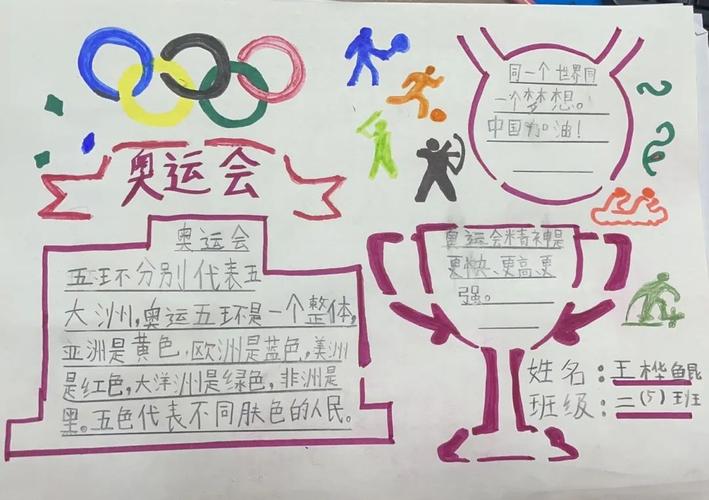 奥运会
奥运会
五环分别代表五
大洲,奥运五环是一个整体,
亚洲是黄色,欧洲是蓝色,美洲
是红色,大洋洲是绿色,非洲是
黑。五色代表不同肤色的人民。
同一个世界同
一个梦想。
中国加油!
奥运会精神是
更快、更高、更
强。
姓名:王桦鲲
班级:二(5)班